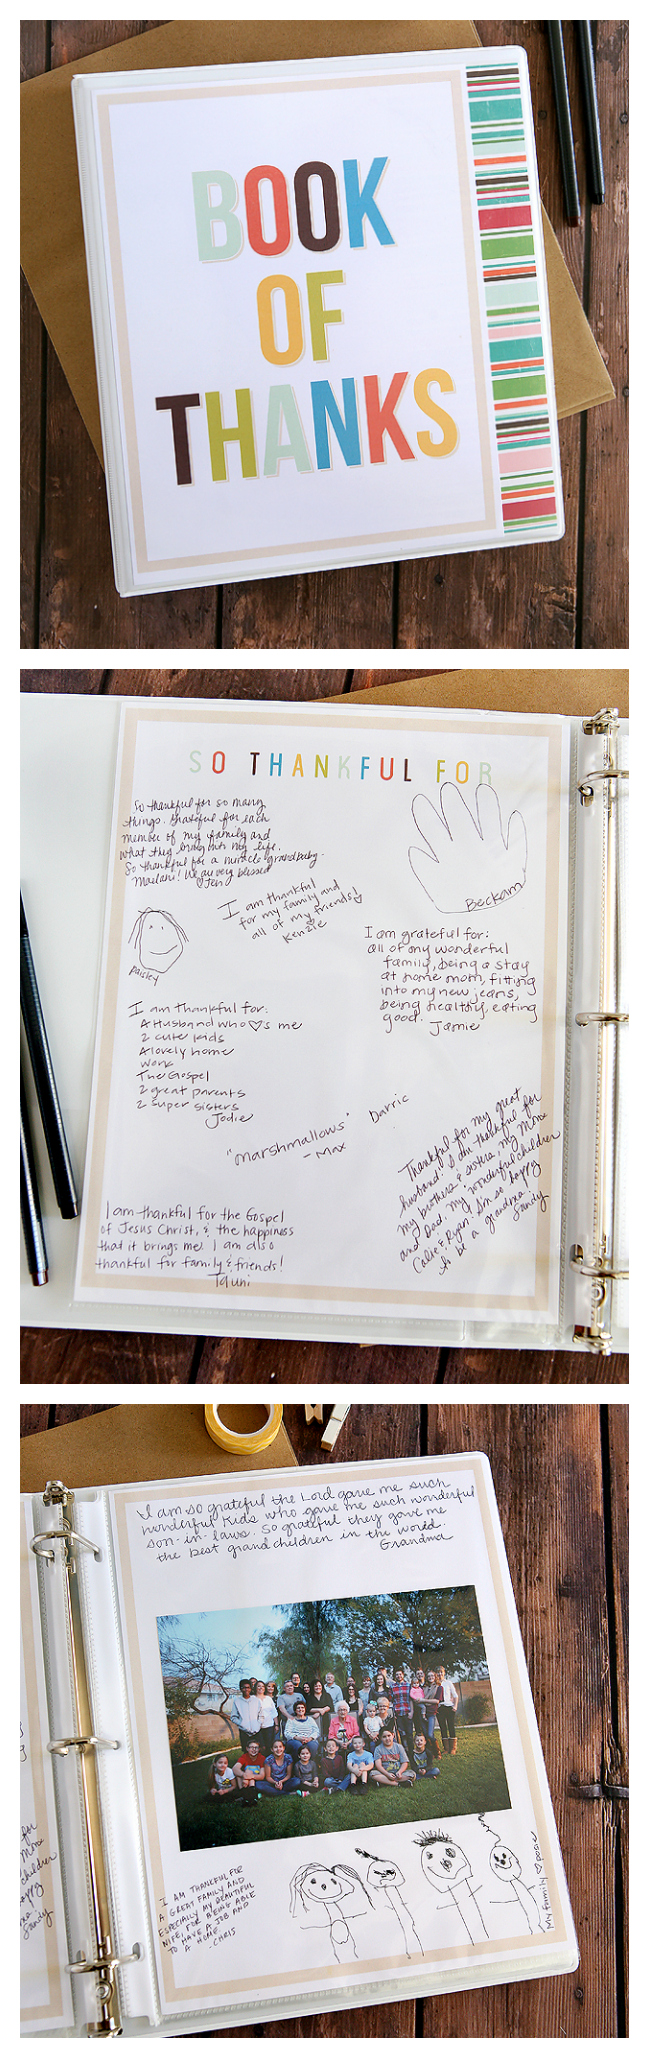 BOOK
OF
THANKS
SO THANKFUL FOR
So thankful for so many
things. Grateful for each
member of my family and
what they bring into my life.
So thankful for a miracle grandbaby.
Maelani! We are very blessed
♡Jen
Beckam
I am thankful
for my family and
all of my friends!♡
Kenzie
I am grateful for:
all of my wonderful
family, being a stay
at home mom, fitting
into my new jeans,
being healthy, eating
good.
Jamie
Paisley
I am thankful for:
A Husband who ♡'s me
2 cute kids
A lovely home
Work
The Gospel
2 great parents
2 super sisters
Jodie
Darric
"marshmallows"
- Max
Thankful for my great
husband. I am thankful for
my brothers & sisters, my Mom
and Dad, my wonderful children
Calie & Ryan. I'm so happy
to be a grandma
Sandy
I am thankful for the Gospel
of Jesus Christ, & the happiness
that it brings me! I am also
thankful for family & friends!
Tauni
I am so grateful the Lord gave me such
wonderful kids who gave me such wonderful
son-in-laws. So grateful they gave me
the best grandchildren in the world.
Grandma
for
Mom
children
happy
Sandy
I AM THANKFUL FOR
A GREAT FAMILY AND
ESPECIALLY MY BEAUTIFUL
WIFE, FOR BEING ABLE
TO HAVE A JOB AND
A HOME.
- CHRIS
My family ♡ Posie